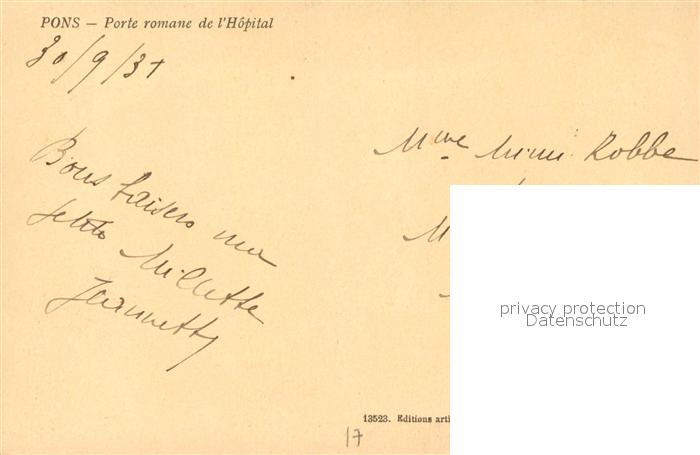 PONS — Porte romane de l'Hôpital
30/9/31
Mme Mimi Robbe
Bons baisers ma
petite Millette
Jeannette
M
privacy protection
Datenschutz
13523. Editions arti
17